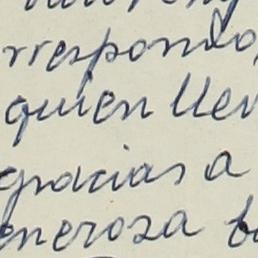 rrespondo
quien llev
gracias a
eneroza b